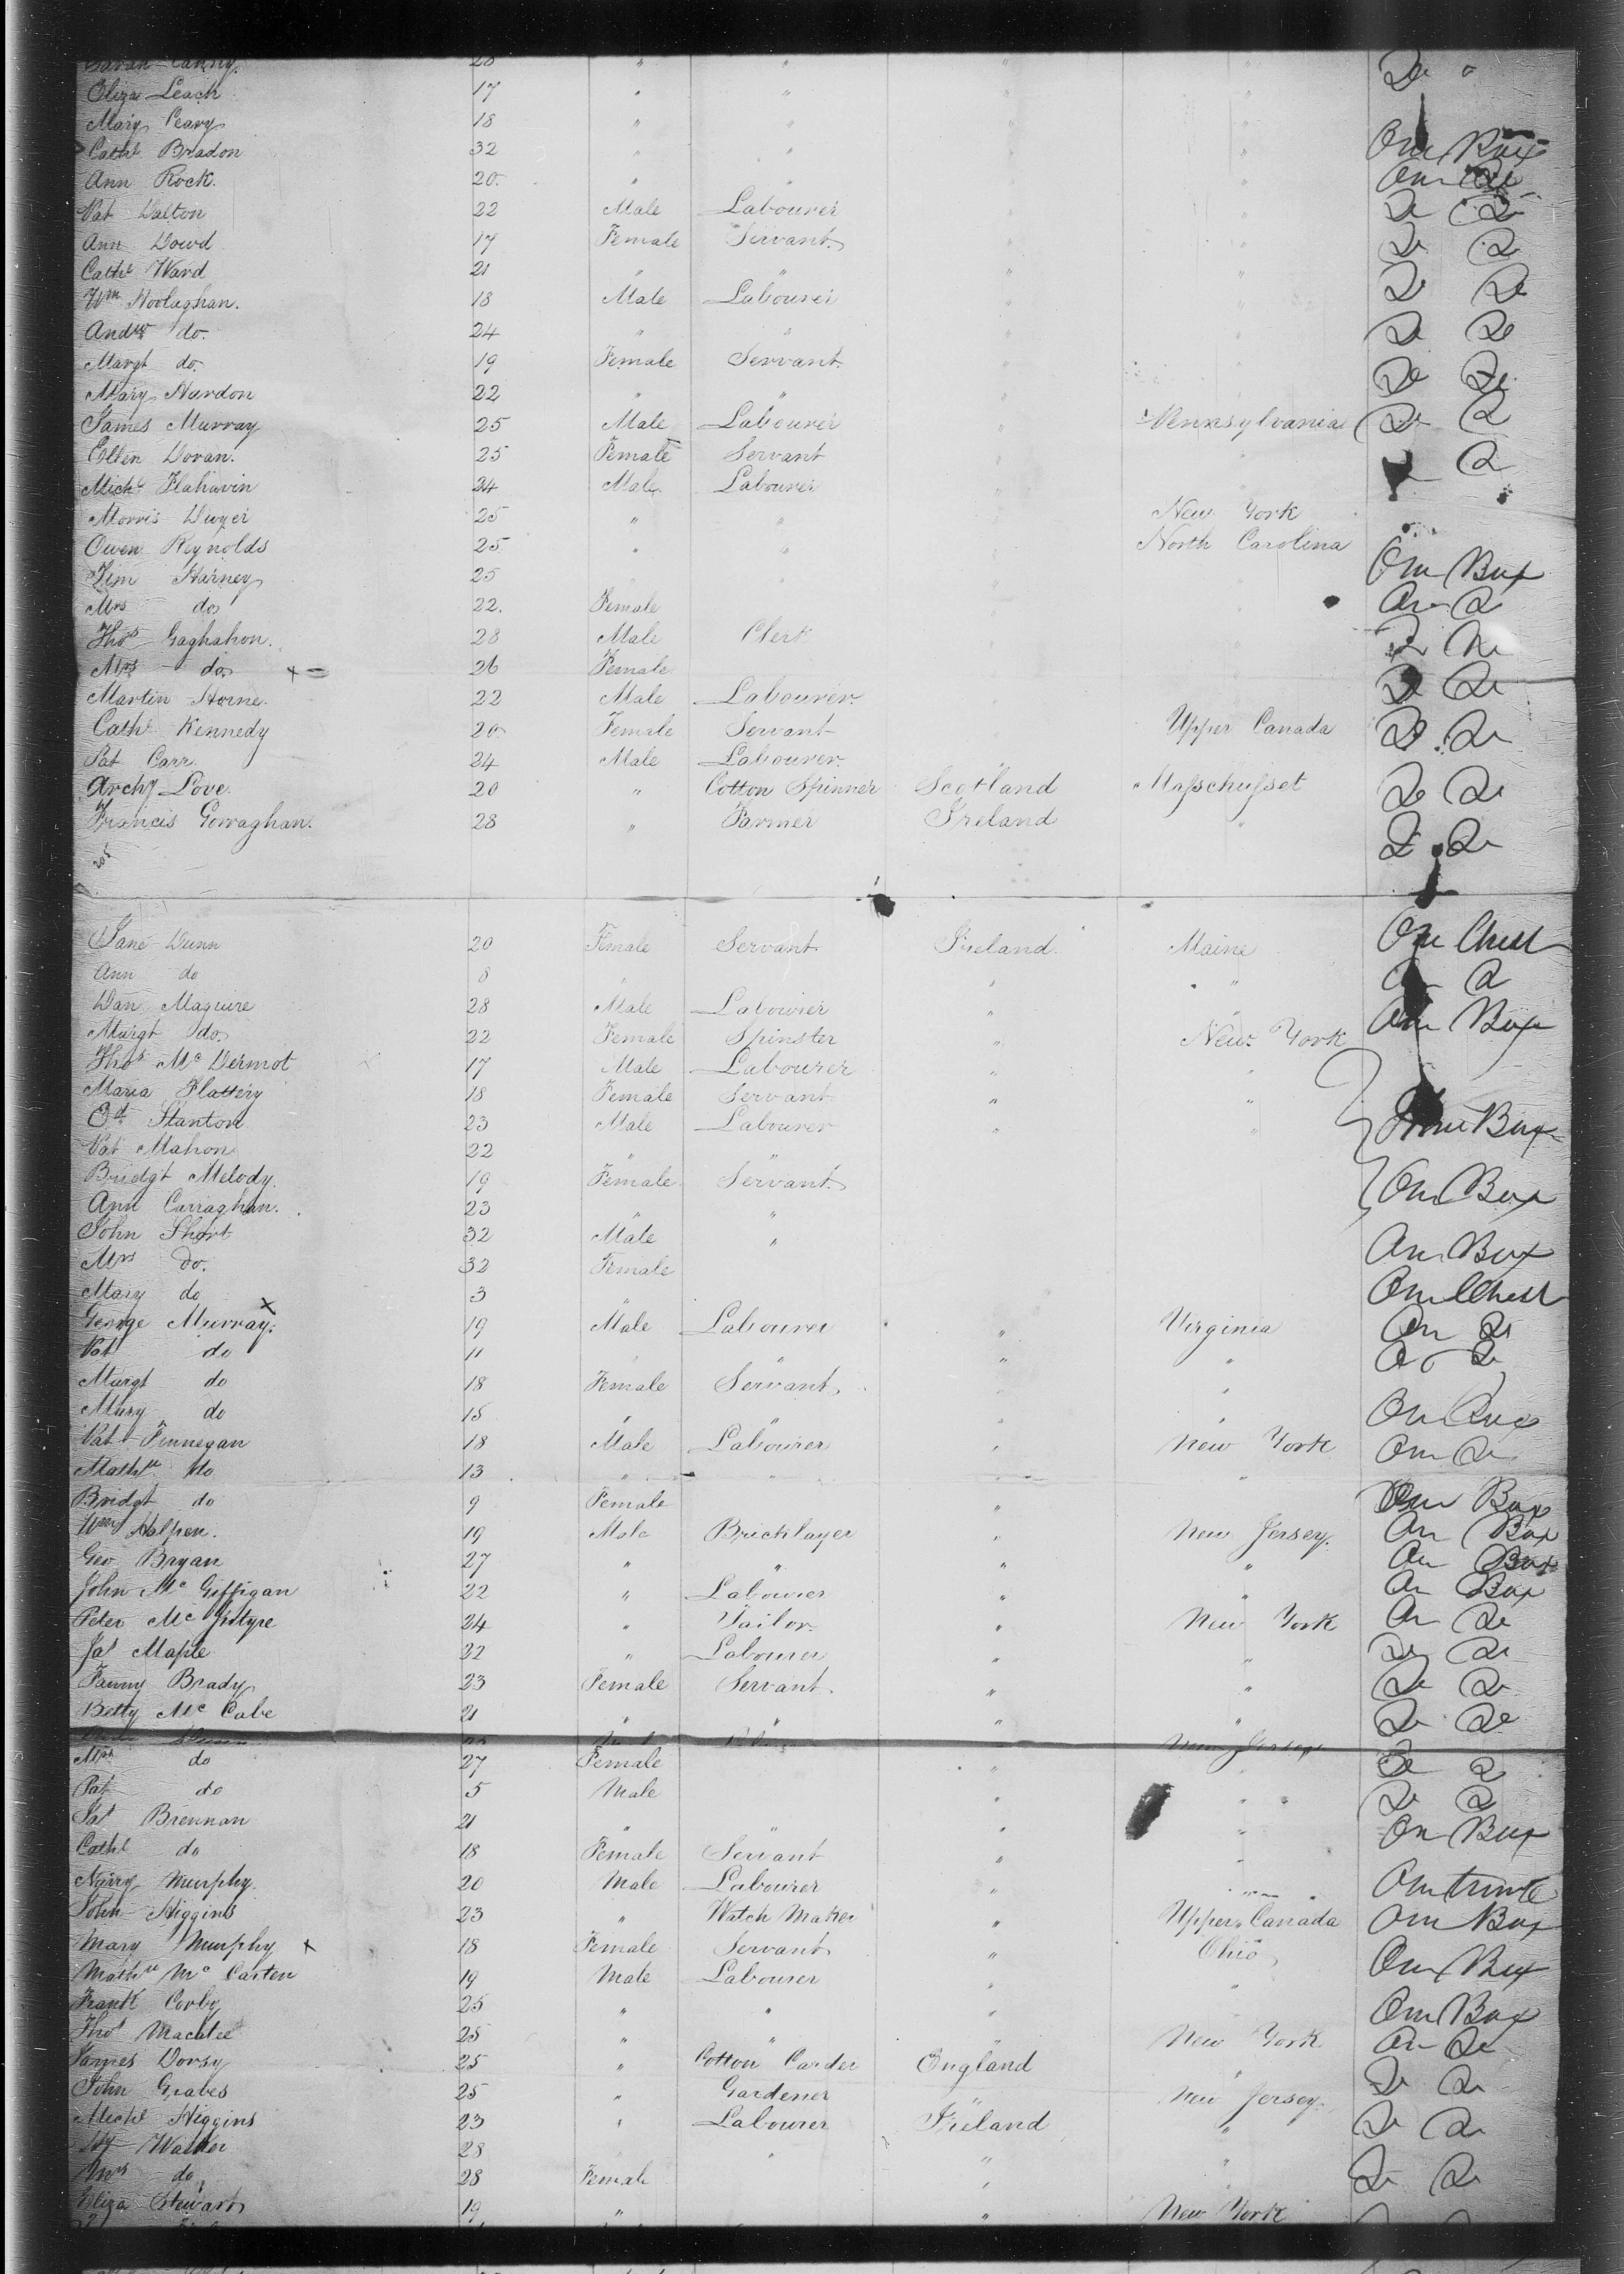 Eliza Leach 17 " " " "
Mary Leavy 18 " " " "
Cathe Bradon 32 " " " " One Box
Ann Rock. 20 " " " One Do
Pat Dalton 22 Male Labourer " " Do Do
Ann Dowd 17 Female Servant " " Do Do
Cathe Ward 21 " " " " Do Do
Wm Noolaghan. 18 Male Labourer " "
Andw do. 24 " " " " Do Do
Margt do. 19 Female Servant " " Do Do
Mary Nardon 22 " "
James Murray 25 Male Labourer " Pennsylvania Do Do
Ellen Doran. 25 Female Servant " Do
Michl Flahavin 24 Male Labourer "
Morris Dwyer 25 " " New York
Owen Reynolds 25 " " North Carolina
Tim Harney 25 " " One Box
Mrs do 22. Female " One Do
Thos Gaghahon. 28 Male Clerk Do Do
Mrs do 26 Female
Martin Horne. 22 Male Labourer Do Do
Cathe Kennedy 20 Female Servant Upper Canada Do Do
Pat Carr 24 Male Labourer
Archy Love. 20 " Cotton Spinner Scotland Masschusset Do Do
Francis Gerraghan. 28 " Farmer Ireland " Do Do
Jane Dunn 20 Female Servant Ireland. Maine One Chest
Ann do 8 " " " One Do
Dan Maguire 28 Male Labourer " " One Box
Margt do. 22 Female Spinster " New York
Thos Mc Dermot 17 Male Labourer " "
Maria Flattery 18 Female Servant " "
Stanton 23 Male Labourer " " Box
Pat Mahon 22 " "
Bridgt Melody. 19 Female Servant One Box
Ann Carraghan. 23 " "
John Short 32 Male " One Box
Mrs do. 32 Female
Mary do 3 " One Chest
George Murray. 19 Male Labourer " Virginia One Do
Pat do 11 " " " " Do
Margt do 18 Female Servant " "
Mary do 15 " " " " One Box
Pat Finnegan 18 Male Labourer " New York One Do
Mathw do 13 " " " "
Bridgt do 9 Female " One Box
Wm Halpen. 19 Male Bricklayer " New Jersey. One Box
Geo Bryan 27 " " " " One Box
John Mc Giffigan 22 " Labourer " " One Box
Peter Mc Intyre 24 " Tailor " New York One Do
Jas Maple 22 " Labourer " " Do Do
Fanny Brady 23 Female Servant " " Do Do
Betty Mc Cabe 21 " " " " Do Do
Mrs do 27 Female " " Do Do
Pat do 5 Male " " Do Do
Brennan 21 " " " " One Box
Cathe do 18 Female Servant " "
Murphy 20 Male Labourer " " One trunk
John Higgins 23 " Watch Maker " Upper Canada One Box
Mary Murphy 18 Female Servant " Ohio
Mathw Mc Carten 19 Male Labourer " " One Box
Frank Corby 25 " " " " One Box
Thos Macatee 25 " " " New York One Do
James Dorsy 25 " Cotton Carder England " Do Do
John Graves 25 " Gardener " New Jersey.
Michl Higgins 23 " Labourer Ireland " Do Do
Walker 28 " " "
Mrs do 28 Female " " Do Do
Eliza Stewart 19 " " New York